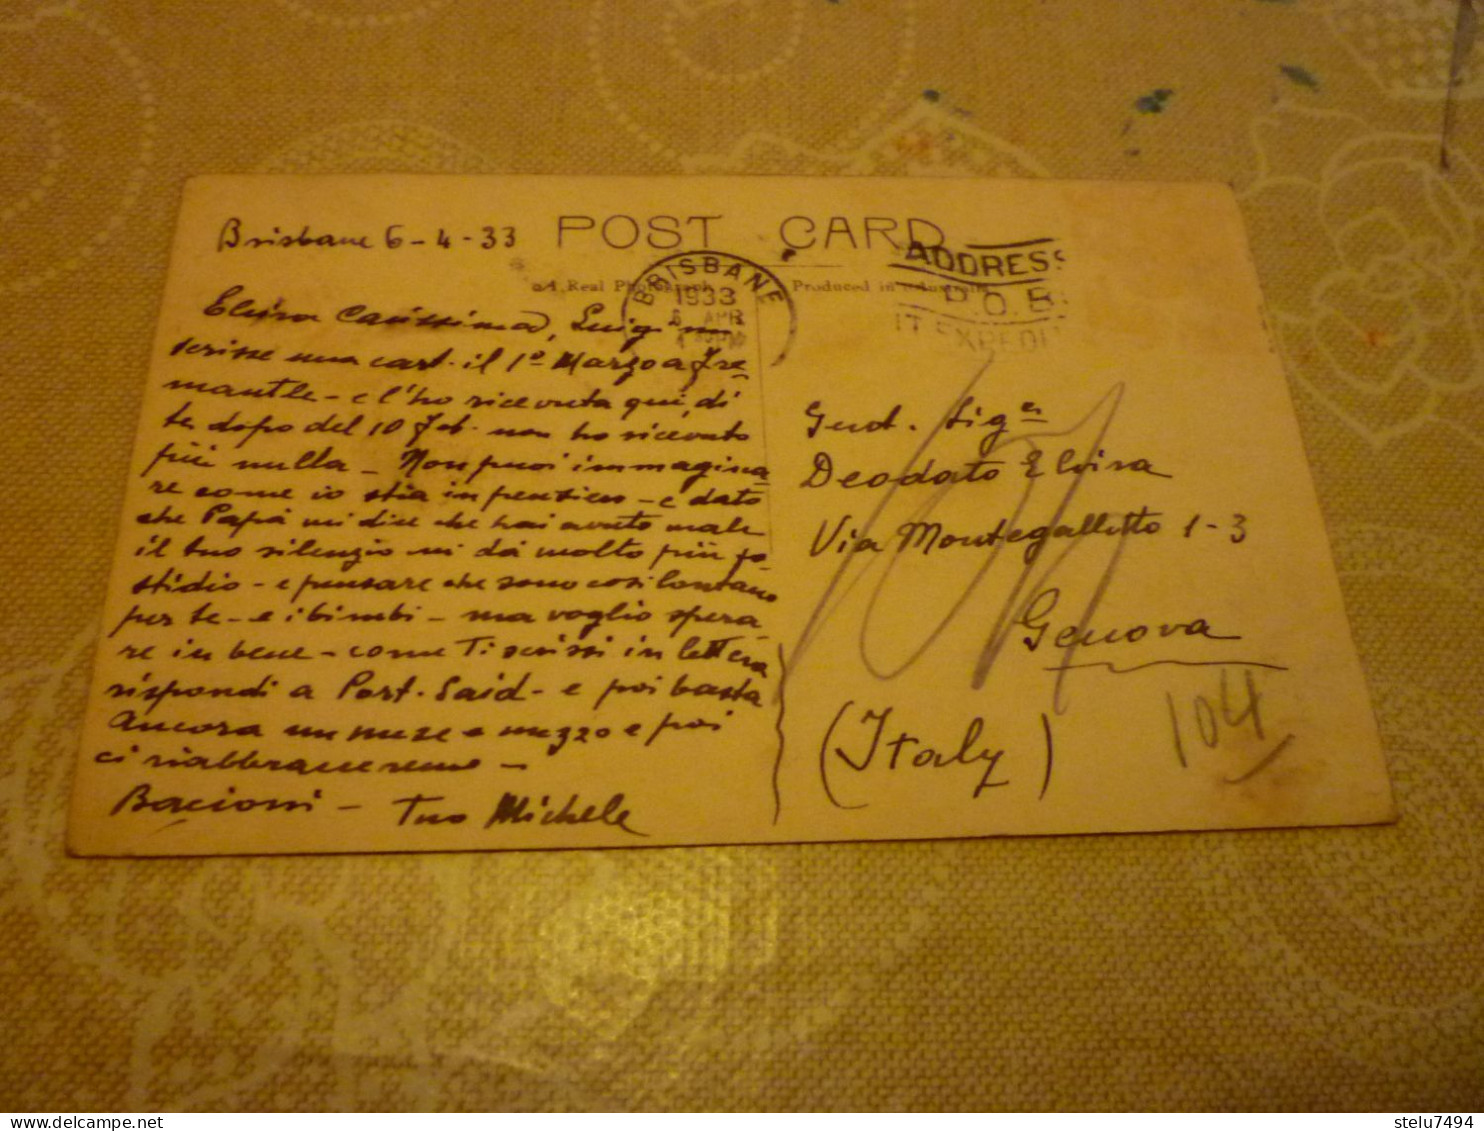 POST CARD
A Real Photograph Produced in Australia
Brisbane 6-4-33
BRISBANE
1933
6 APR
ADDRESS
P.O. B
IT EXPEDI
Elvira Carissima, Luigi mi
scrisse una cart. il 1º Marzo a Fre
mantle - e l'ho ricevuta qui, di
te dopo del 10 Feb. non ho ricevuto
più nulla - Non puoi immagina
re come io stia in pensiero - e dato
che Papà mi dice che hai avuto male
il tuo silenzio mi dà molto più fa
stidio - e pensare che sono così lontano
per te - e i bimbi - ma voglio spera
re in bene - come Ti scrissi in lettera
rispondi a Port-Said - e poi basta
Ancora un mese e mezzo e poi
ci riabbracceremo -
Bacioni - Tuo Michele
Gent. Sigra
Deodato Elvira
Via Montegalletto 1-3
Genova
(Italy)
104
delcampe.net
stelu7494